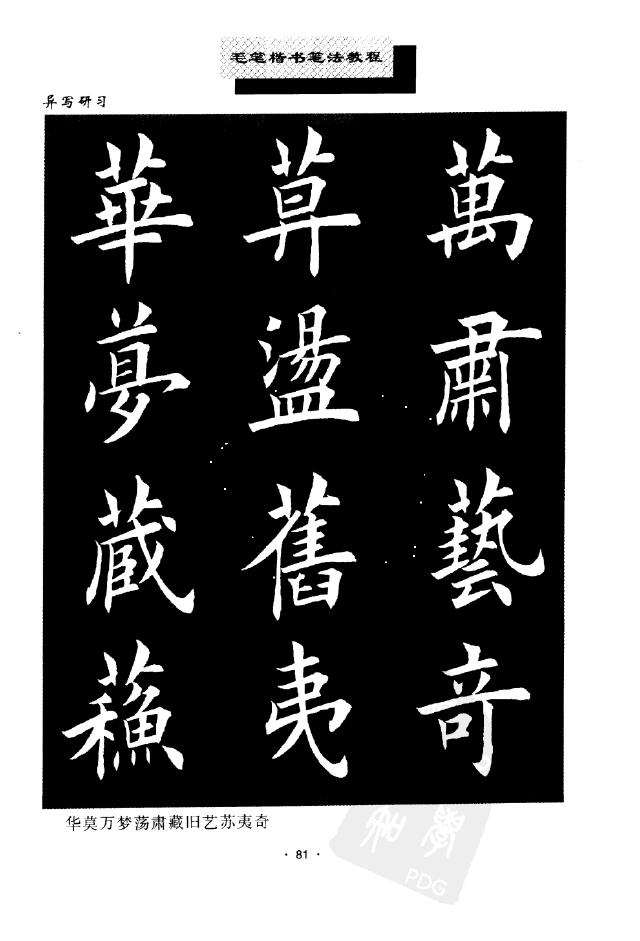 毛笔楷书笔法教程
异写研习
華莫萬
夢盪肅
蔵舊藝
蘓夷竒
华莫万梦荡肃藏旧艺苏夷奇
· 81 ·
PDG